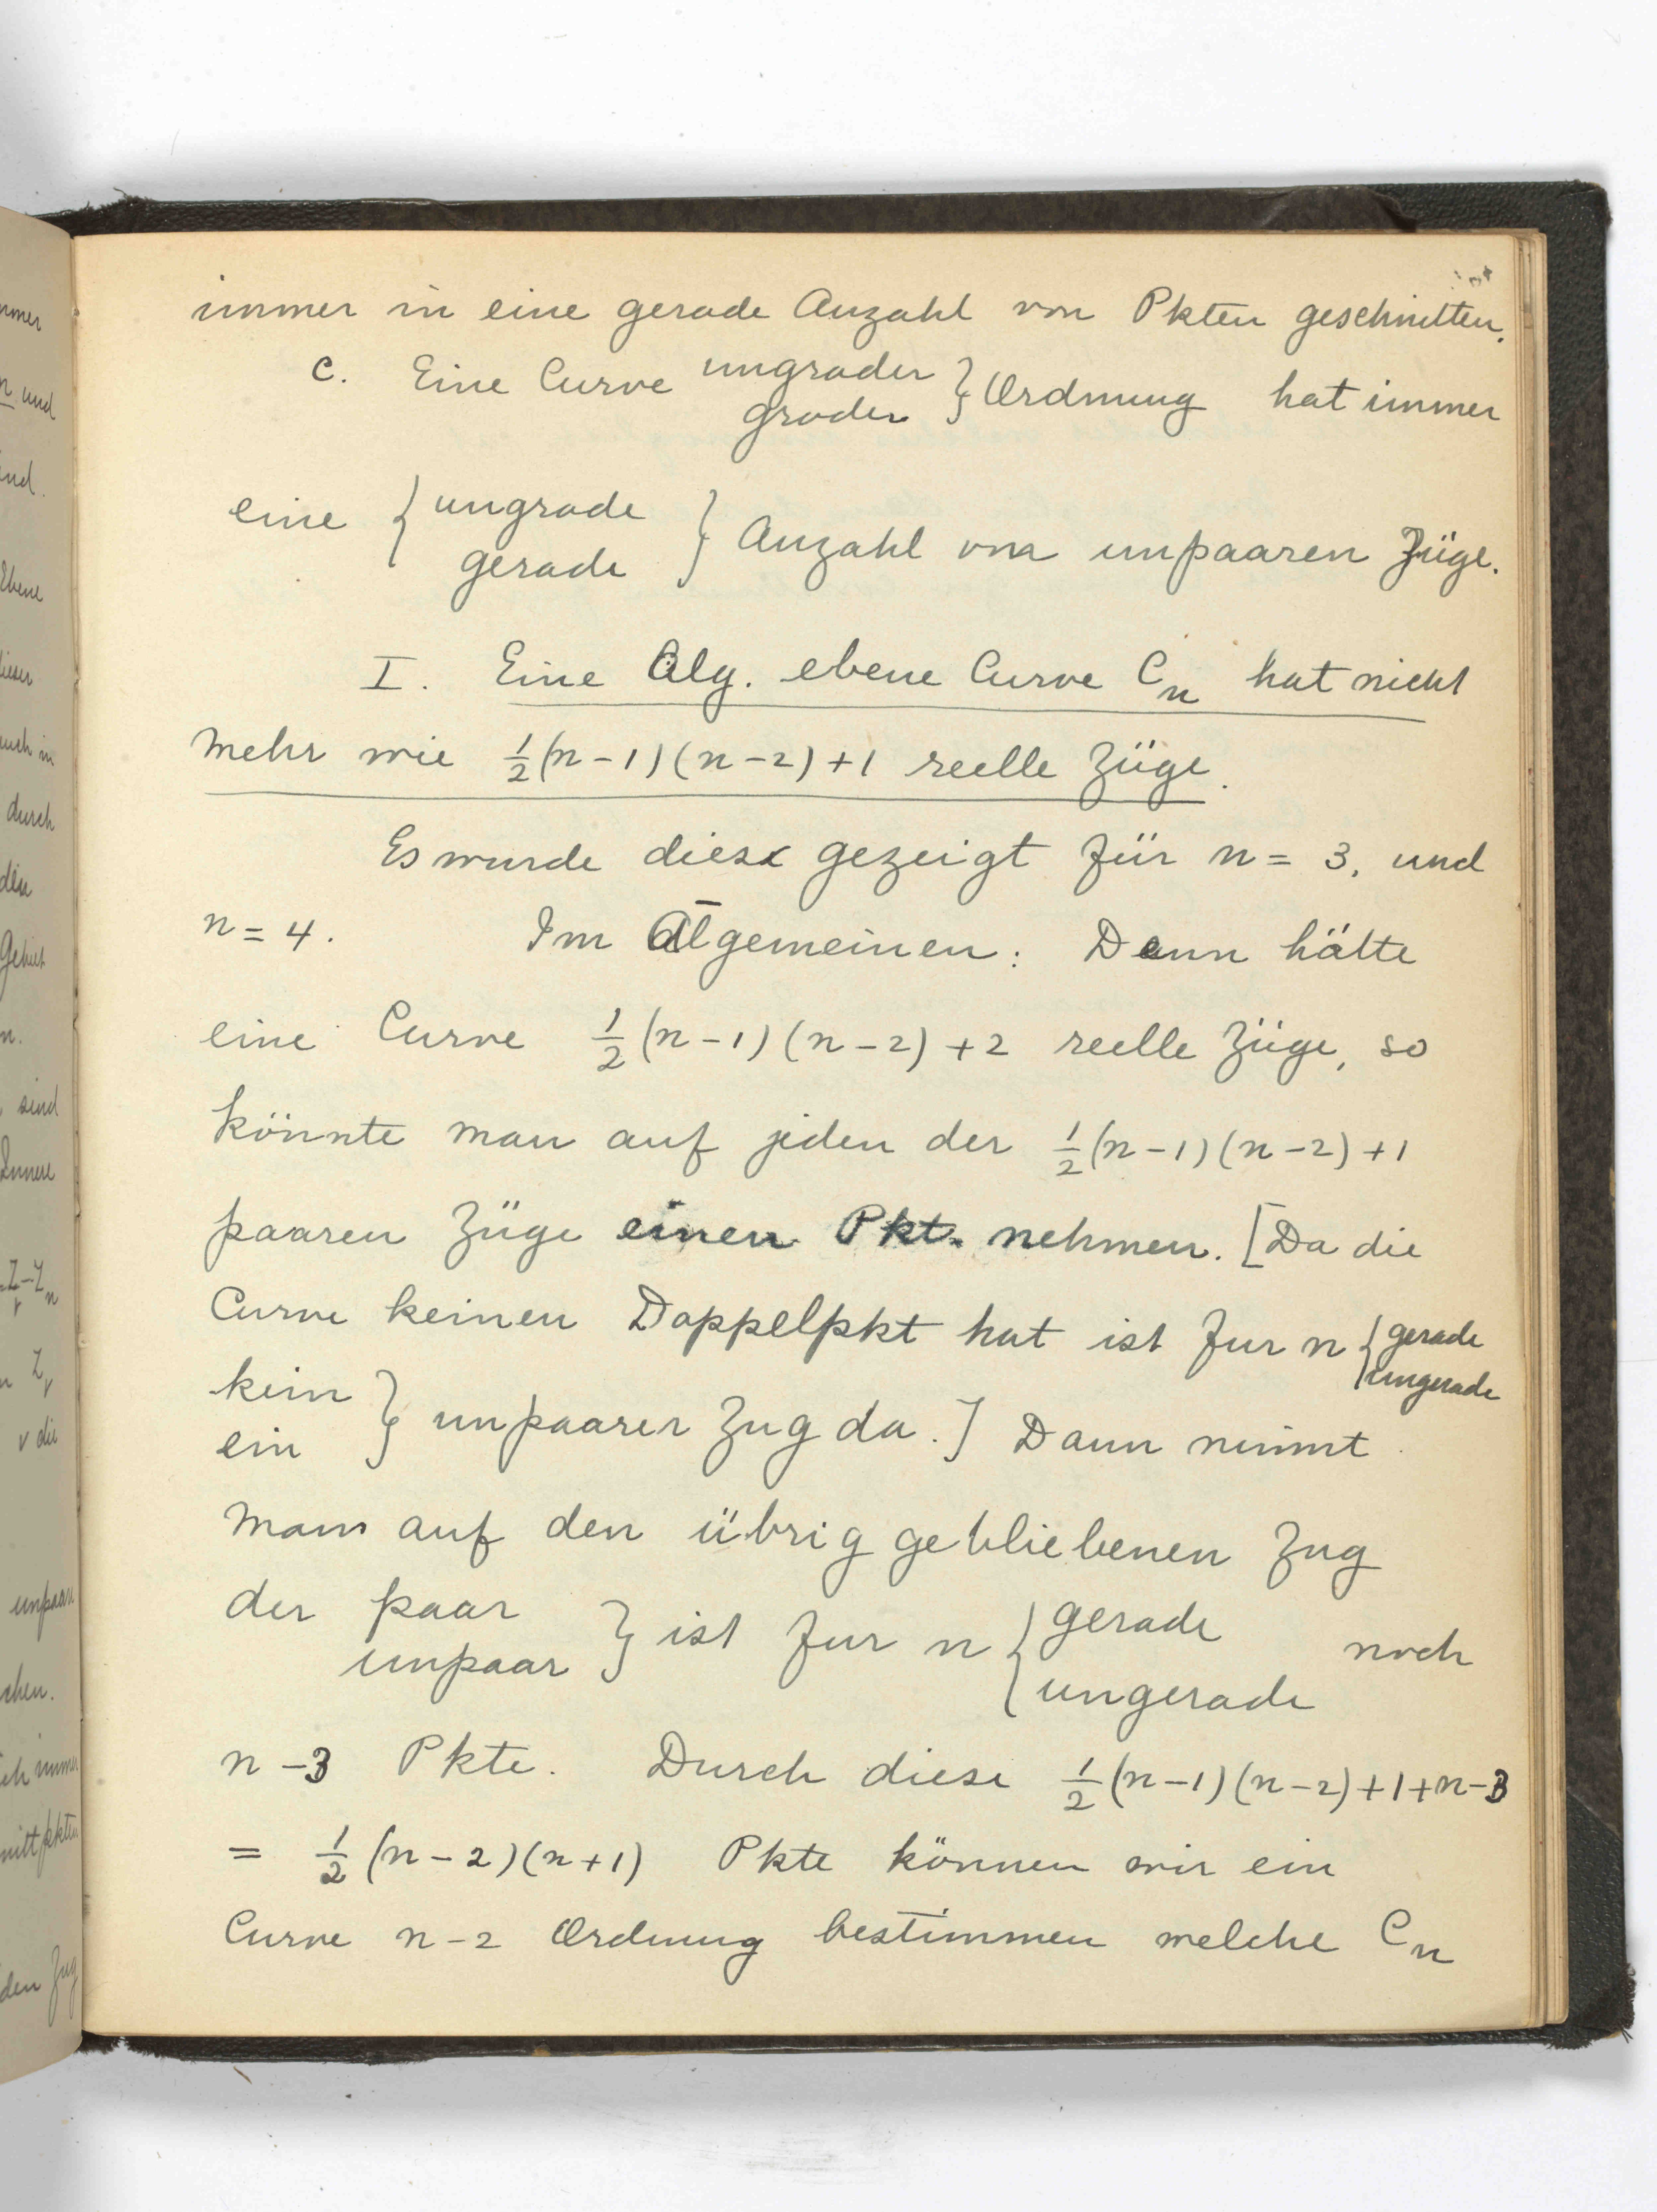 immer in eine gerade Anzahl von Pkten geschnitten.
c. Eine Curve { ungrader
grader } Ordnung hat immer
eine { ungrade
gerade } Anzahl von unpaaren Züge.
I. Eine Alg. ebene Curve Cₙ hat nicht
mehr wie ½(n-1)(n-2)+1 reelle Züge.
Es wurde diese gezeigt für n = 3, und
n = 4. Im Algemeinen: Denn hätte
eine Curve ½(n-1)(n-2)+2 reelle Züge, so
könnte man auf jeden der ½(n-1)(n-2)+1
paaren Züge einen Pkt. nehmen. [Da die
Curve keinen Doppelpkt hat ist fur n { gerade
ungerade
kein
ein } unpaarer Zug da.] Dann nimmt
man auf den übrig gebliebenen Zug
der paar
unpaar } ist fur n { gerade
ungerade noch
n-3 Pkte. Durch diese ½(n-1)(n-2)+1+n-3
= ½(n-2)(n+1) Pkte können wir ein
Curve n-2 Ordnung bestimmen welche Cₙ